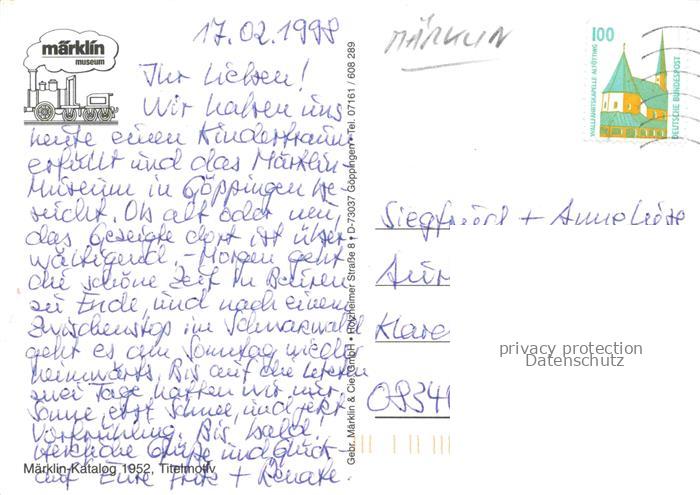 17.02.1998
MÄRKLIN
märklin
museum
100
WALLFAHRTSKAPELLE ALTÖTTING
DEUTSCHE BUNDESPOST
Ihr Lieben!
Wir haben uns
heute einen Kindertraum
erfüllt und das Märklin-
Museum in Göppingen be-
sucht. Ob alt oder neu,
das Gezeigte dort ist über-
wältigend. - Morgen geht
die schöne Zeit in Beuren
zu Ende, und nach einem
Zwischenstop im Schwarzwald
geht es am Sonntag wieder
heimwärts. Bis auf die letzten
zwei Tage hatten wir nur
Sonne, erst Schnee, und jetzt
Vorfrühling. Bis bald!
Herzliche Grüße und Glück
auf Eure Fritz + Renate.
Märklin-Katalog 1952, Titelmotiv
Gebr. Märklin & Cie. GmbH • Holzheimer Straße 8 • D-73037 Göppingen • Tel. 07161 / 608 289
Siegfried + Anneliese
Aur
Klare
privacy protection
Datenschutz
0834